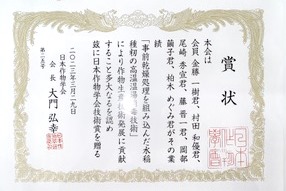 賞状
本会は
会員 金勝一樹君、村田和優君、
尾崎秀宣君、藤晋一君、岡部
繭子君、柏木めぐみ君がその業
績
「事前乾燥処理を組み込んだ水稲
種籾の高温温湯消毒技術」
により作物生産技術発展に貢献
すること多大なるを認め
茲に日本作物学会技術賞を贈る
二〇二三年三月二九日
日本作物学会
会長 大門弘幸